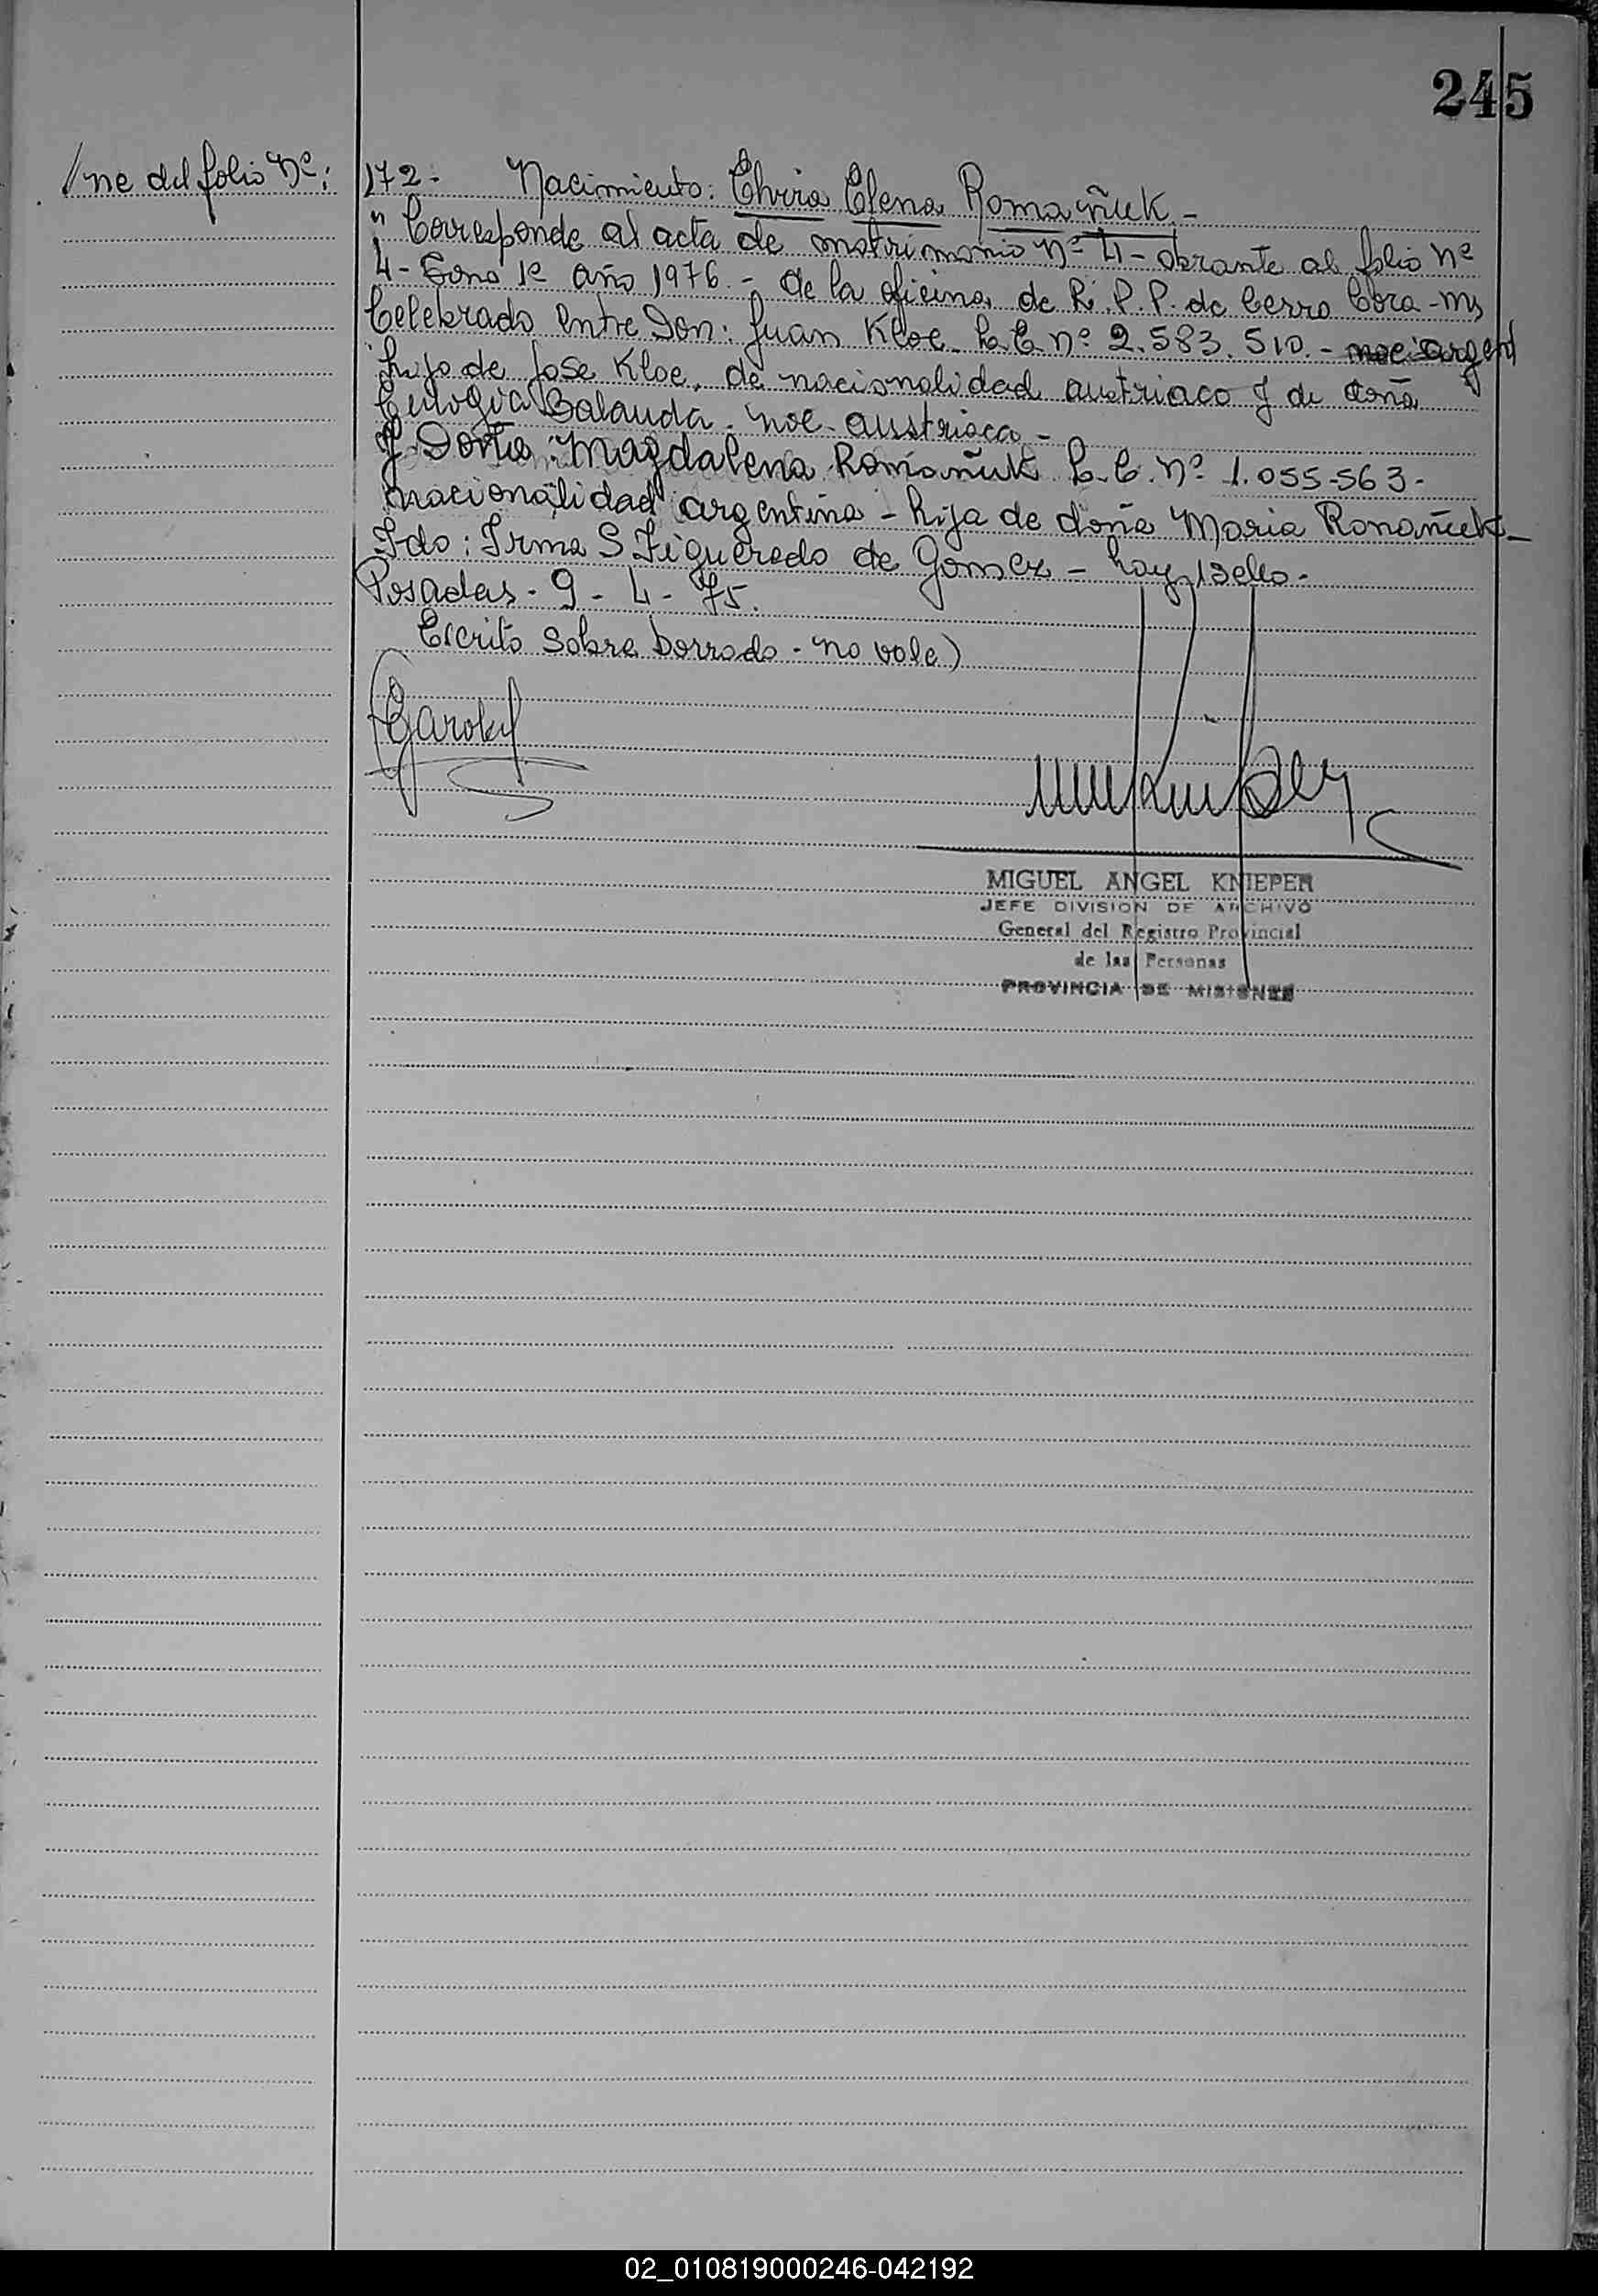 245
/ne del folio Nº: 172- Nacimiento: Elvira Elena Romañuk -
" Corresponde al acta de matrimonio Nº 4 - obrante al folio Nº
4 - Tomo 1º año 1976.- de la oficina de R. P. P. de Cerro Cora - Ms
Celebrado entre Don: Juan Kloc L. E. nº 2.583.510.- nac. argent
hijo de Jose Kloc, de nacionalidad austriaco y de doña
Eulogia Balauda. nac. austriaca -
y Doña: Magdalena Romañuk L. C. Nº 1.055-563-
nacionalidad argentina - hija de doña Maria Romañuk -
Fdo: Irma S Figueredo de Gomez - hay 1 sello -
Posadas - 9 - 4 - 75.
Escrito sobre borrado - no vale)
MIGUEL ANGEL KNIEPER
JEFE DIVISION DE ARCHIVO
General del Registro Provincial
de las Personas
PROVINCIA DE MISIONES
02_010819000246-042192